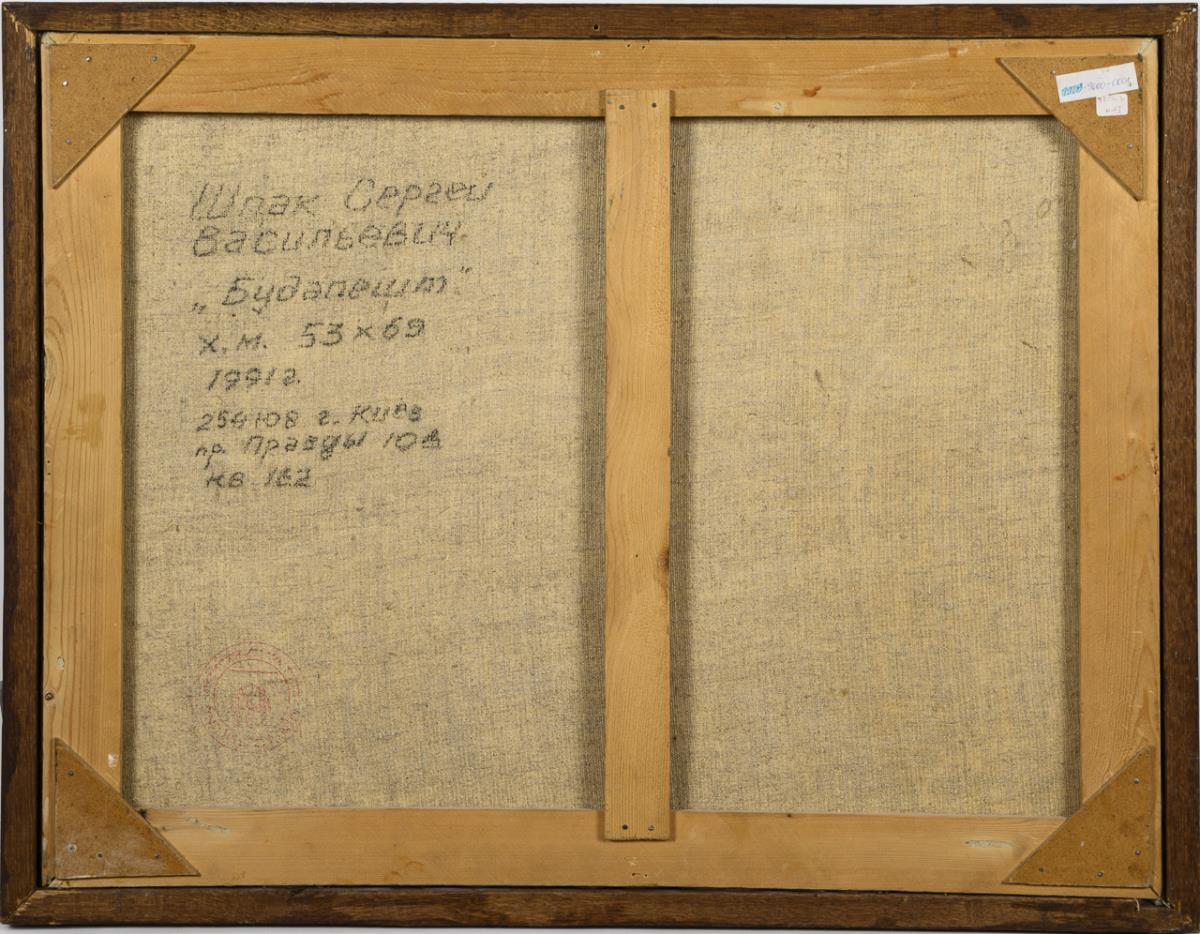 Шпак Сергей
Васильевич.
„Будапешт"
х.м. 53×69
1991 г.
254108 г. Киев
пр. Правды 10а
кв 162